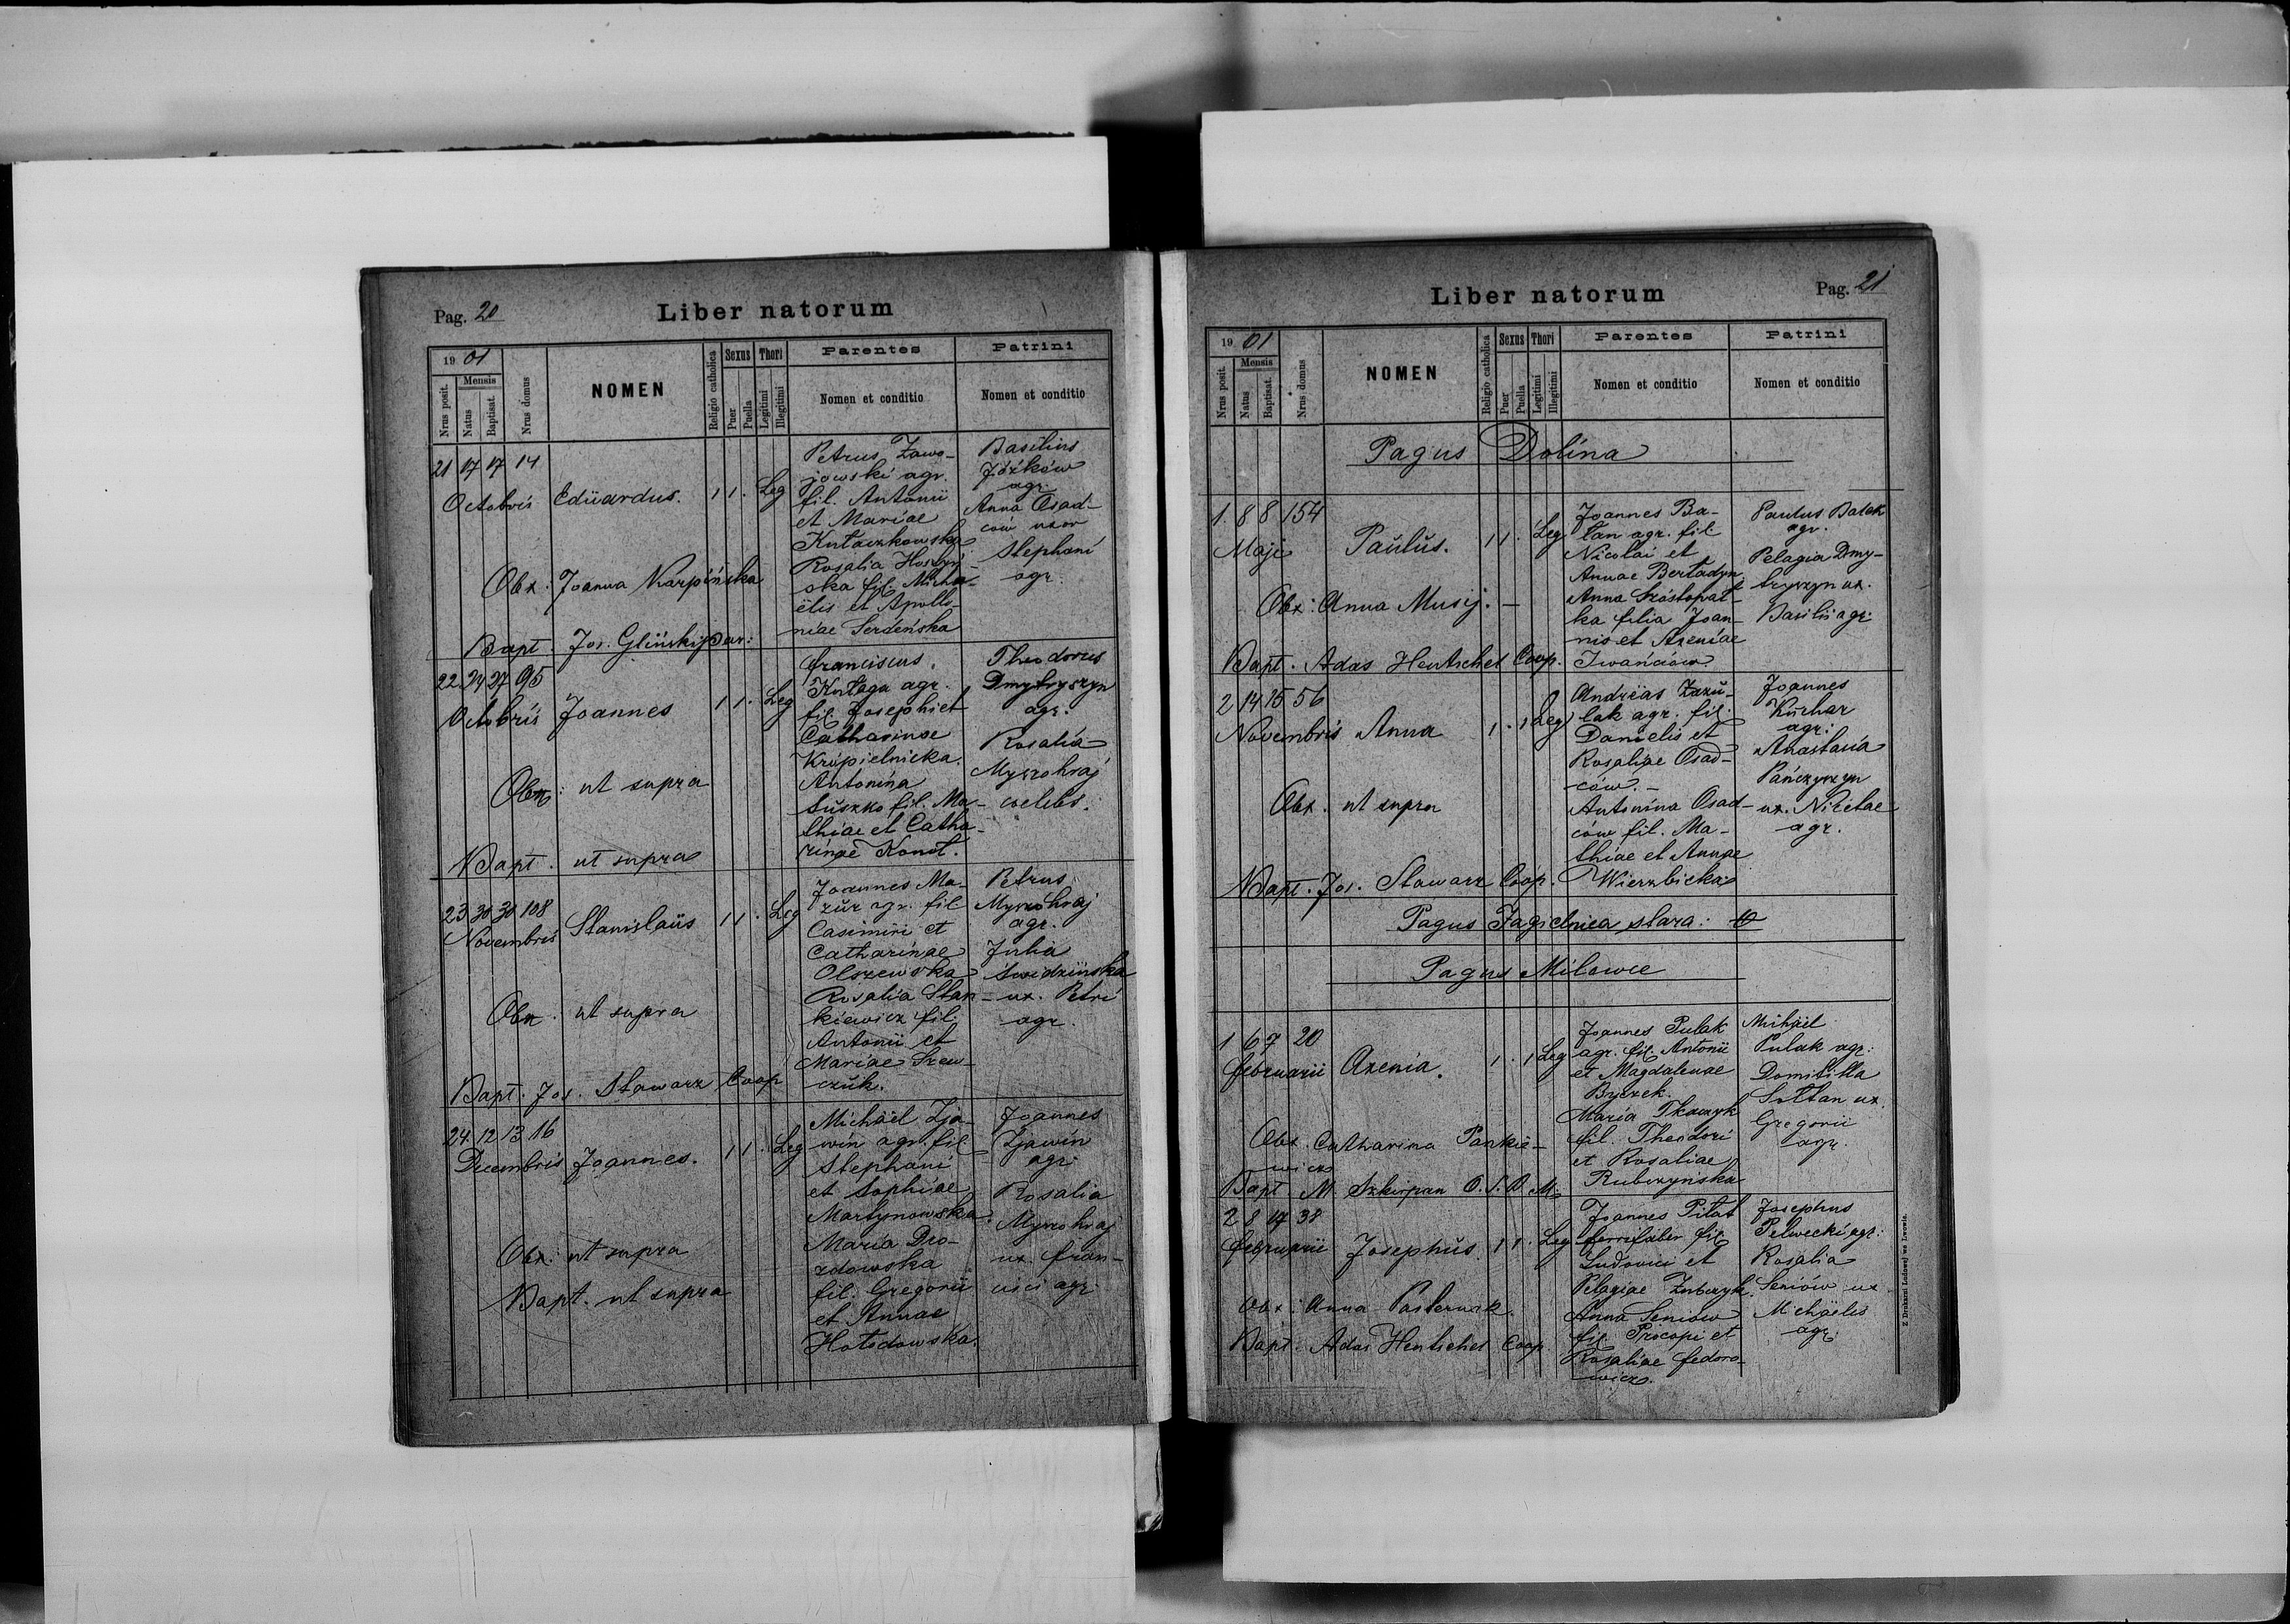 Pag. 20
Liber natorum
19 01
Nrus posit.
Mensis
Natus
Baptisat.
Nrus domus
NOMEN
Religio catholica
Sexus
Puer
Puella
Thori
Legitimi
Illegitimi
Parentes
Nomen et conditio
Patrini
Nomen et conditio
21 17 17 14
Octobris
Eduardus.
1 1. Leg
Petrus Zawo-
jowski agr.
fil. Antonii
et Mariae
Kutaczkowska
Rosalia
ska fil. Micha-
ëlis et Apollo-
niae Serdeńska
Basilius
Józków
agr.
Anna Osad-
ców uxor
Stephani
agr.
Obx: Joanna Karpińska
Bapt. Jos. Gliński par:
22 24 27 95
Octobris
Joannes
1 1. Leg
Franciscus
agr.
fil. Josephi et
Catharinae
Kropielnicka.
Antonina
Suszko fil. Ma-
thiae et Catha-
rinae Konot.
Theodorus
Dmytryszyn
agr.
Rosalia
Myszohraj
coelebs.
Obx: ut supra
Bapt. ut supra
23 30 30 108
Novembris
Stanislaus
1 1. Leg
Joannes Ma-
zur agr. fil
Casimiri et
Catharinae
Olszewska
Rosalia Stan-
kiewicz fil.
Antonii et
Mariae Szew-
czuk.
Petrus
Myszohraj
agr.
Julia
Swidzińska
ux. Petri
agr.
Obx. ut supra
Bapt. Jos. Stawarz Coop
24 12 13 16
Decembris
Joannes.
1 1. Leg
Michaël Zja-
win agr. fil
Stephani
et Sophiae
Martynowska.
Maria Dro-
zdowska
fil. Gregorii
et Annae
Hołodowska.
Joannes
Zjawin
agr.
Rosalia
Myszohraj
ux. Fran-
cisci agr.
Obx: ut supra
Bapt. ut supra
Liber natorum
Pag. 21
19 01
Nrus posit.
Mensis
Natus
Baptisat.
Nrus domus
NOMEN
Religio catholica
Sexus
Puer
Puella
Thori
Legitimi
Illegitimi
Parentes
Nomen et conditio
Patrini
Nomen et conditio
Pagus Dolina
1. 8 8 154
Maji
Paulus.
1 1. Leg
Joannes Ba-
agr. fil
Nicolai et
Annae
Anna Szostopał-
ka filia Joan-
nis et Axeniae
Iwańców
Paulus
agr.
Pelagia Dmy-
tryszyn ux.
Basilii agr.
Obx: Anna Musij. —
Bapt. Adas Hentschel Coop.
2 14 15 56
Novembris
Anna
1. 1 Leg
Andreas Zazu-
lak agr. fil.
Danielis et
Rosaliae Osad-
ców. —
Antonina Osad-
ców fil. Ma-
thiae et Annae
Wierzbicka
Joannes
Kuchar
agr.
Anastasia
Pańczyszyn
ux. Nicetae
agr.
Obx. ut supra
Bapt. Jos. Stawarz Coop.
Pagus Jagielnica stara:
Pagus Milowce
1 6 7 20
Februarii
Axenia.
1. 1 Leg
Joannes Pulak
agr. fil. Antonii
et Magdalenae
Byczek.
Maria Tkaczyk
fil. Theodori
et Rosaliae
Rubczyńska
Michaël
Pulak agr.
Domitilla
Sołtan ux.
Gregorii
agr.
Obx. Catharina Pankie-
wicz
Bapt. M. Szkirpan O. S. B. M.
2 8 17 38
Februarii
Josephus
1 1. Leg
Joannes Piłat
ferrifaber fil.
Ludovici et
Pelagiae
Anna Seniów
fil. Procopi et
Rosaliae Fedoro-
wicz.
Josephus
Pelwecki agr.
Rosalia
Seniów ux
Michaëlis
agr.
Obx: Anna Pasternak.
Bapt. Adas Hentschel Coop.
Z Drukarni Ludowej we Lwowie.